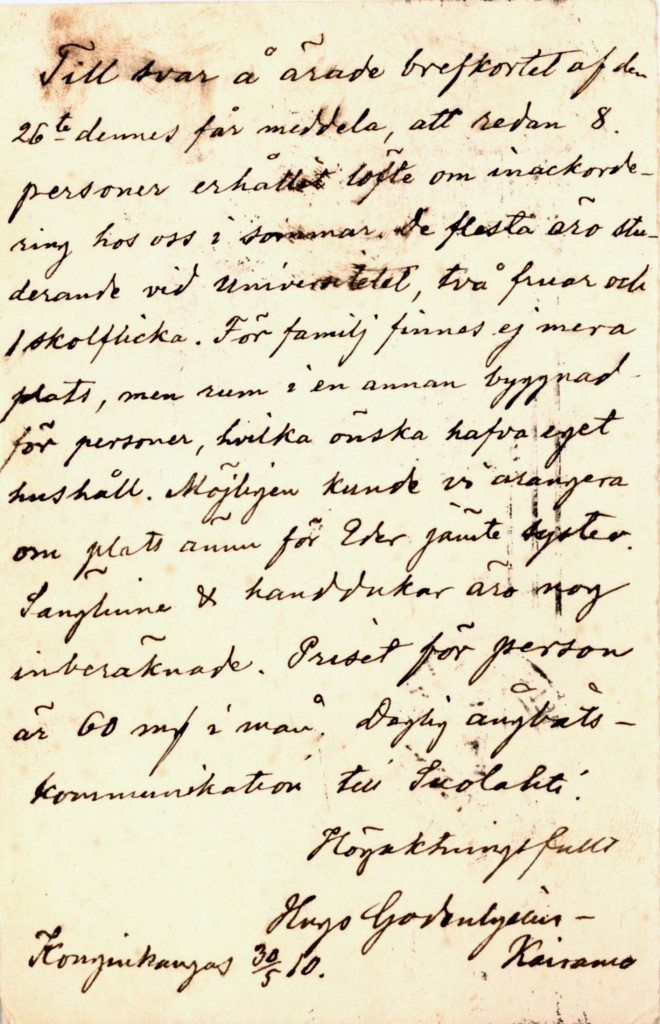 Till svar å ärade brefkortet af den
26te dennes får meddela, att redan 8.
personer erhållit löfte om inackorde-
ring hos oss i sommar. De flesta äro stu-
derande vid Universitetet, två fruar och
1 skolflicka. För familj finnes ej mera
plats, men rum i en annan byggnad
för personer, hvilka önska hafva eget
hushåll. Möjligen kunde vi arangera
om plats ännu för Eder jämte syster.
Sänglinne & handdukar äro nog
inberäknade. Priset för person
är 60 mk i mån. Daglig ångbåts-
kommunikation till Suolahti.
Högaktningsfullt
Hugo Godenhjelm-
Konginkangas 30/5 10. Kairamo